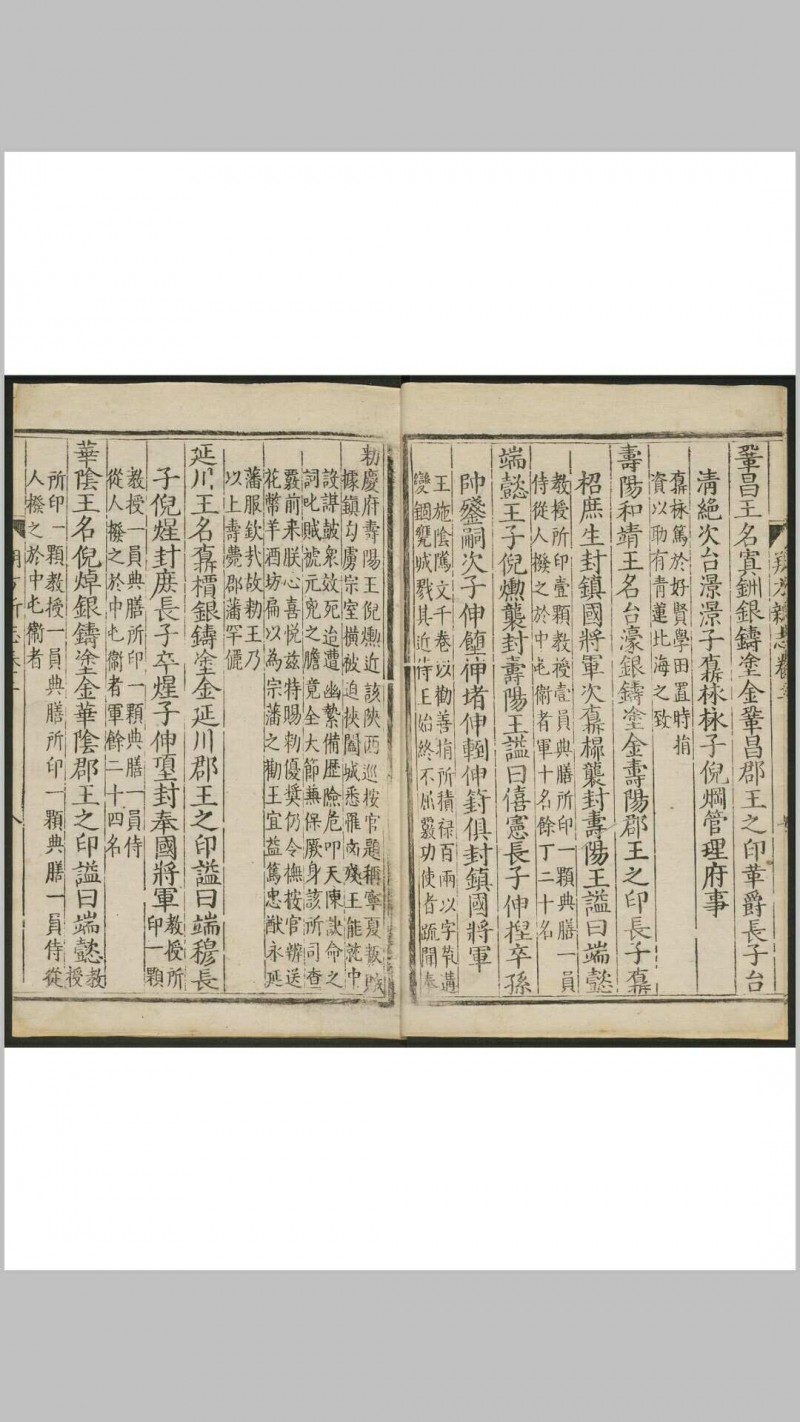 鞏昌王名寘銂銀鑄塗金鞏昌郡王之印革爵長子台
清絶次台濝濝子鼒㭆㭆子倪焵管理府事
鼒㭆篤於好賢學田置時捐
資以助有青蓮北海之致
壽陽和靖王名台濠銀鑄塗金壽陽郡王之印長子鼒
柖庶生封鎮國將軍次鼒櫾襲封壽陽王謚曰端懿
教授所印壹顆教授壹員典膳所印一顆典膳一員
侍從人撥之於中屯衞者軍十名餘丁二十名
端懿王子倪爋襲封壽陽王謚曰僖憲長子伸揑卒孫
帥鋈嗣次子伸𡐤伸堵伸𡌴伸䇟俱封鎮國將軍
王施陰隲文千卷以勸善捐所積禄百兩以字𦭘遘
變錮甕城戮其近侍王始終不屈覈功使者䟽聞奉
勅慶府壽陽王倪爋近該陜西巡按官題稱寧夏叛賊
據鎮勾虜宗室横被迫挾闔城悉罹凶殘王能乾中
設謀詖衆敛死迨遭幽縶備歴險危叩天陳訣命之
詞叱賊褫元兇之膽竟全大節兼保厥身該所司查
覈前来朕心喜悦兹特賜勅優奨仍令撫按官辨送
花幣羊酒坊扁以為宗藩之勸王宜益篤忠猷永延
藩服欽㦲故勅王乃
以上壽甍郡藩罕儷
延川王名鼒槚銀鑄塗金延川郡王之印謚曰端穆長
子倪煋封庻長子卒煋子伸𡍼封奉國將軍
教授所
印一顆
教授一員典膳所印一顆典膳一員侍
從人撥之於中屯衞者軍餘二十四名
華陰王名倪焯銀鑄塗金華陰郡王之印謚曰端懿
教
授
所印一顆教授一員典膳所印一顆典膳一員侍從
人撥之於中屯衞者